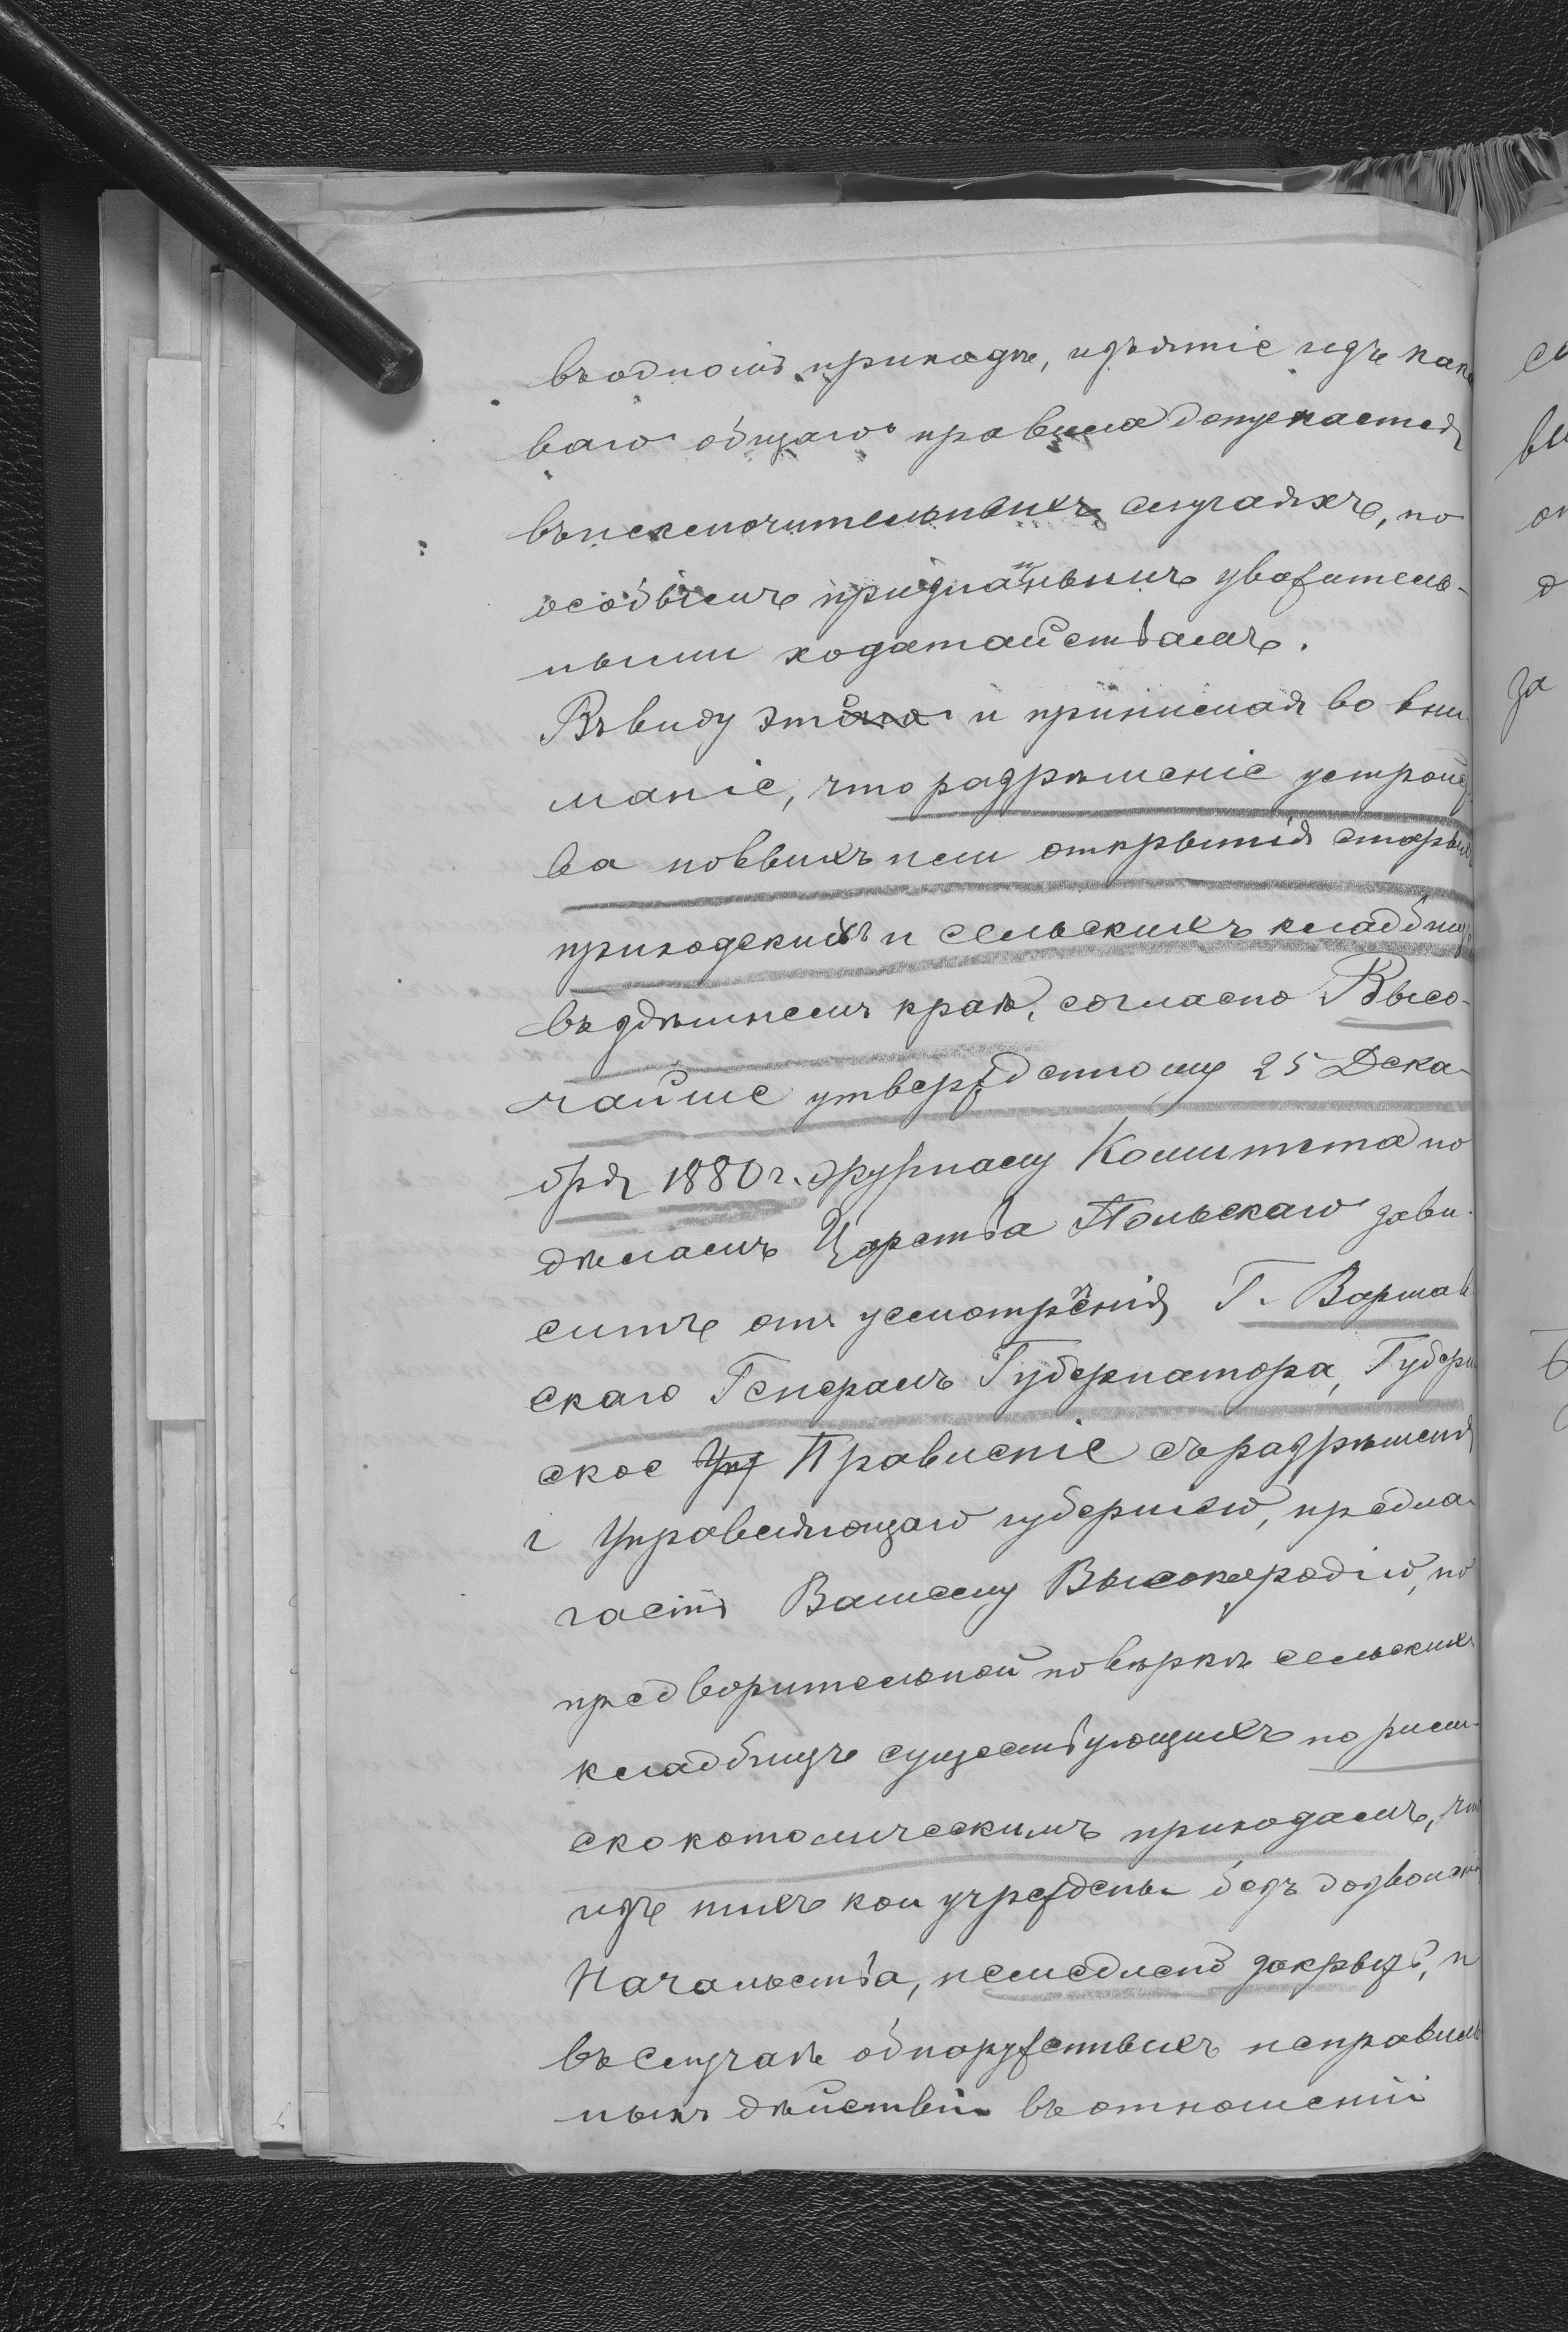 въ одномъ приходѣ, изъятіе изъ како
ваго общаго правила допускается
въ исключительныхъ случаяхъ, по
особымъ признаннымъ уважитель-
ными ходатайствамъ.
Въ виду этого и принимая во вни
маніе, что разрѣшеніе устройст
ва новыхъ или открытія старыхъ
приходскихъ и сельскихъ кладбищъ
въ здѣшнемъ краѣ, согласно Высо-
чайше утвержденному 25 Дека-
бря 1880 г. журналу Комитета по
дѣламъ Царства Польскаго зави
ситъ отъ усмотрѣнія Г. Варшав
скаго Генералъ Губернатора, Губерн
ское Правленіе съ разрѣшенія
г Управляющаго губерніею, предла-
гаетъ Вашему Высокородію, по
предворительной повѣркѣ сельскихъ
кладбищъ существующихъ по рим-
скокатолическимъ приходамъ, что
изъ нихъ кои учреждены безъ дозволенія
Начальства, немедленно закрыть, и
въ случаѣ обнаруженныхъ неправиль
ныхъ дѣйствій въ отношеніи